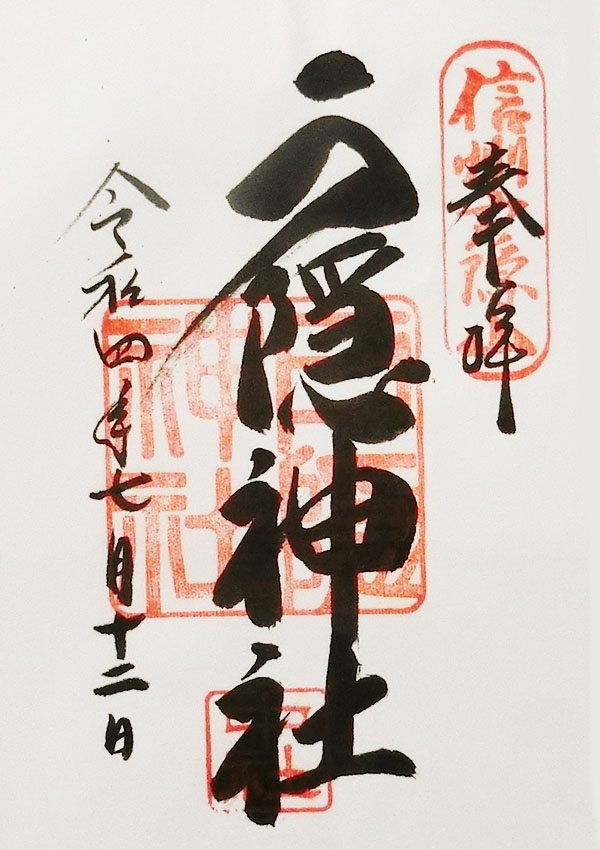 奉拝
信州戸隠山
戸隠神社
戸隠神社
令和四年七月十二日